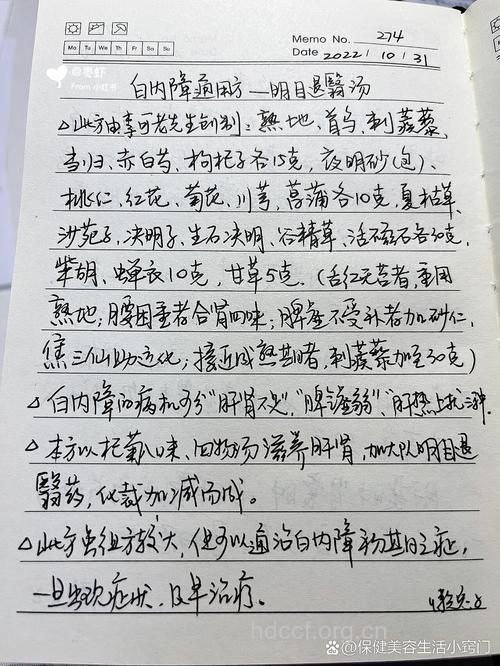 Memo No. 274
Mo Tu We Th Fr Sa Su
Date 2022 / 10 / 31
@枣虾
From 小红书
白内障通用方—明目退翳汤
△此方由李可老先生创制：熟地、首乌、刺蒺藜、
当归、赤白芍、枸杞子各15克，夜明砂(包)、
桃仁、红花、菊花、川芎、菖蒲各10克，夏枯草、
沙苑子、决明子、生石决明、谷精草、活磁石各30克，
柴胡、蝉衣10克，甘草5克。(舌红无苔者，重用
熟地；腰困重者合肾四味；脾虚不受补者加砂仁，
焦三仙助运化；接近成熟期者，刺蒺藜加至30克)
△白内障的病机可分“肝肾不足”，“脾气虚弱”、“肝热上扰”三种。
△本方以杞菊八味、四物汤滋养肝肾，加大队明目退
翳药，化裁加减而成。
△此方虫组方较大，但可以通治白内障初期之症，
一旦出现症状，及早治疗。
hdccf.org.cn
@保健美容生活小窍门